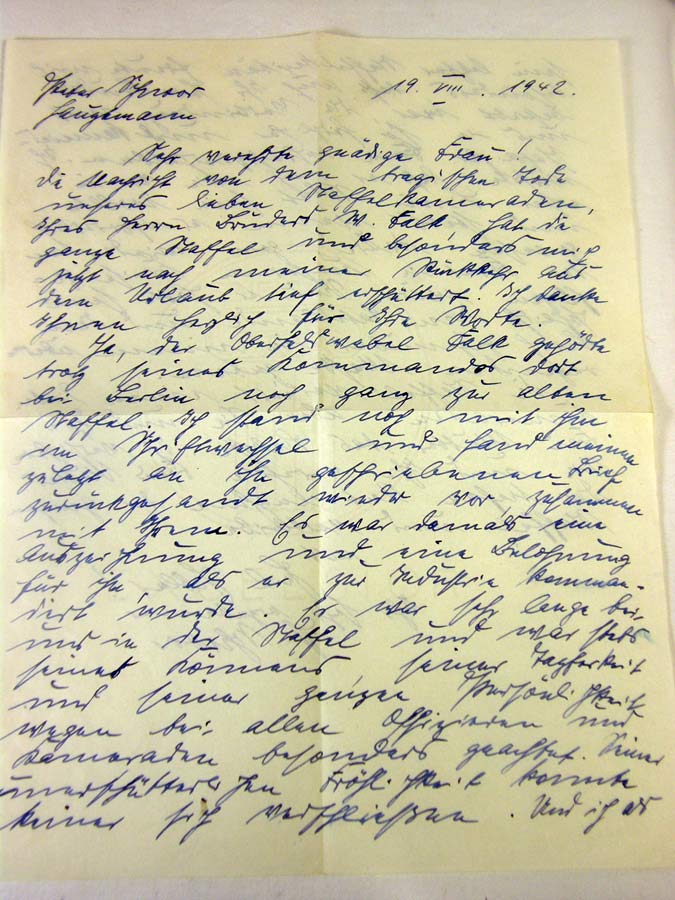 Peter Schroor 19. VIII. 1942.
Langemann
Sehr verehrte gnädige Frau!
Die Nachricht von dem tragischen Tode
unseres lieben Staffelkameraden,
Ihres Herrn Bruders W. Falk hat die
ganze Staffel und besonders mich
jetzt nach meiner Rückkehr aus
dem Urlaub tief erschüttert. Ich danke
Ihnen herzlich für Ihre Worte.
Ja, der Oberfeldwebel Falk gehörte
trotz seines Kommandos dort
bei Berlin noch ganz zur alten
Staffel. Ich stand noch mit ihm
im Schriftwechsel und fand meinen
zuletzt an ihn geschriebenen Brief
zurückgesandt wieder vor zusammen
mit Ihrem. Es war damals eine
Auszeichnung und eine Belohnung
für ihn als er zur Industrie komman-
diert wurde. Er war sehr lange bei
uns in der Staffel und war stets
seines Könnens seiner Tapferkeit
und seiner ganzen Persönlichkeit
wegen bei allen Offizieren und
Kameraden besonders geachtet. Seiner
unerschütterlichen Fröhlichkeit konnte
keiner sich verschließen. Und ich als